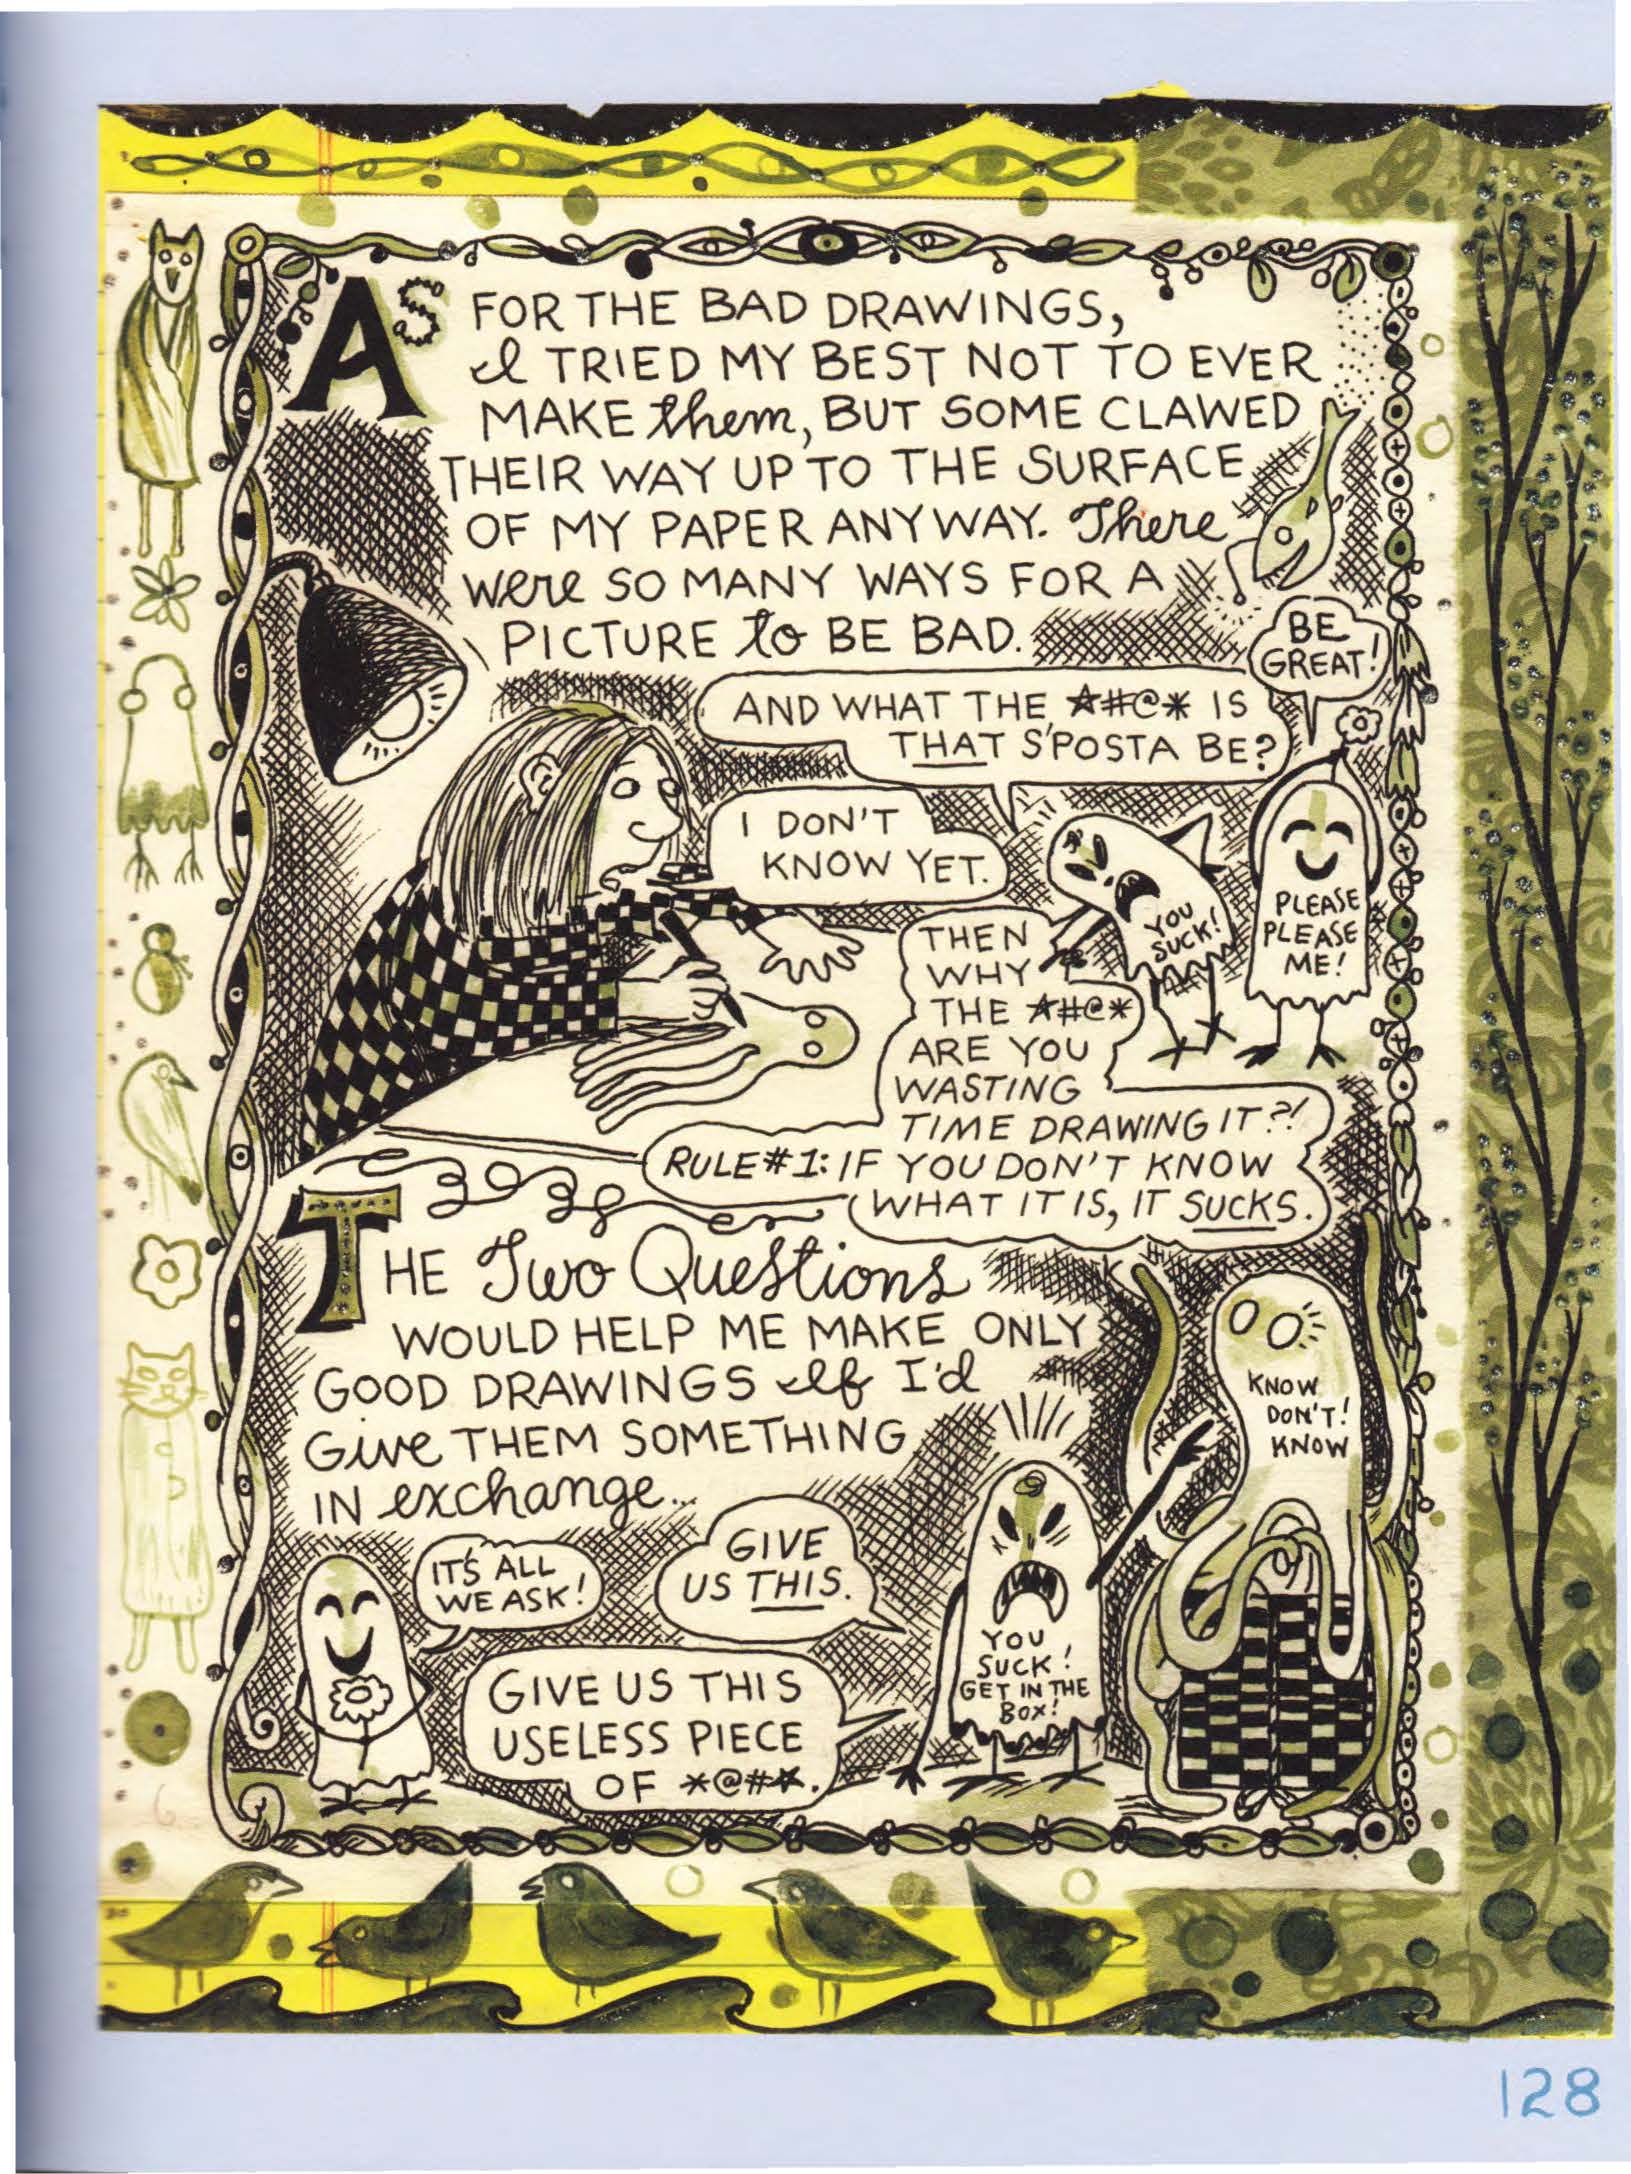 AS FOR THE BAD DRAWINGS,
I TRIED MY BEST NOT TO EVER
MAKE them, BUT SOME CLAWED
THEIR WAY UP TO THE SURFACE
OF MY PAPER ANYWAY. There
were SO MANY WAYS FOR A
PICTURE to BE BAD.
BE
GREAT!
AND WHAT THE ☆#@* IS
THAT S'POSTA BE?
I DON'T
KNOW YET.
YOU
SUCK!
PLEASE
PLEASE
ME!
THEN
WHY
THE ☆#@*
ARE YOU
WASTING
TIME DRAWING IT?!
RULE #1: IF YOU DON'T KNOW
WHAT IT IS, IT SUCKS.
THE Two Questions
WOULD HELP ME MAKE ONLY
GOOD DRAWINGS If I'd
Give THEM SOMETHING
IN exchange...
KNOW
DON'T!
KNOW
IT'S ALL
WE ASK!
GIVE
US THIS.
YOU
SUCK!
GET IN THE
BOX!
GIVE US THIS
USELESS PIECE
OF *@#☆.
128